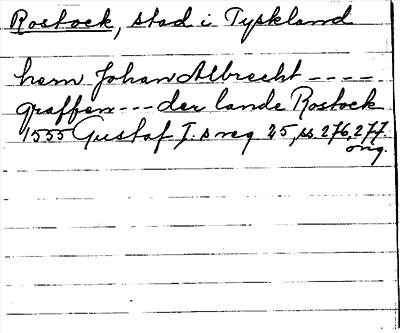 Rostock, stad i Tyskland
hem Johan Albrecht ----
graffen --- der lande Rostock
1555 Gustaf I.s reg 25, ss. 276, 277.
orig.